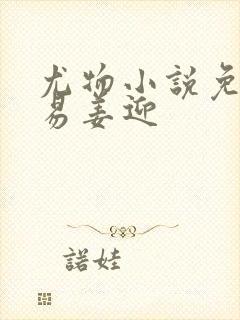 尤物小説免
易姜迎
諾娃